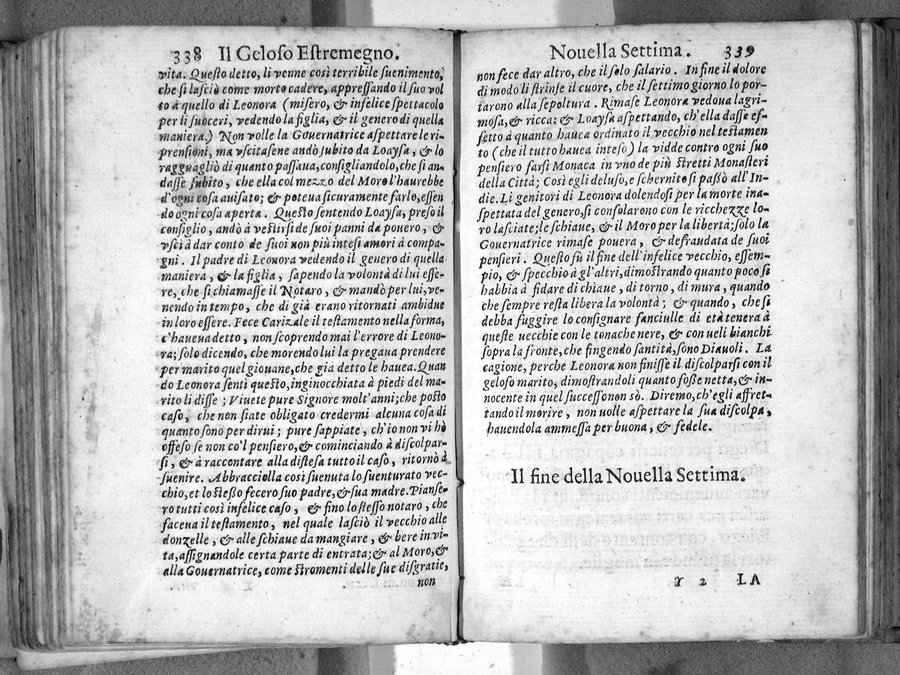 338 Il Geloso Estremegno.
vita. Questo detto, li venne così terribile suenimento,
che si lasciò come morto cadere, appressando il suo vol
to à quello di Leonora (misero, & infelice spettacolo
per li suoceri, vedendo la figlia, & il genero di quella
maniera.) Non volle la Gouernatrice aspettare le ri-
prensioni, ma vscitasene andò subito da Loaysa, & lo
ragguagliò di quanto passaua, consigliandolo, che si an-
dasse subito, che ella col mezzo del Moro l'haurebbe
d'ogni cosa auisato; & poteua sicuramente farlo, essen
do ogni cosa aperta. Questo sentendo Loaysa, preso il
consiglio, andò à vestirsi de suoi panni da pouero, &
vscì à dar conto de suoi non più intesi amori à compa-
gni. Il padre di Leonora vedendo il genero di quella
maniera, & la figlia, sapendo la volontà di lui esse-
re, che si chiamasse il Notaro, & mandò per lui, ve-
nendo in tempo, che di già erano ritornati ambidue
in loro essere. Fece Carizale il testamento nella forma,
c'haueua detto, non scoprendo mai l'errore di Leono-
ra; solo dicendo, che morendo lui la pregaua prendere
per marito quel giouane, che già detto le hauea. Quan
do Leonora sentì questo, inginocchiata à piedi del ma-
rito li disse; Viuete pure Signore molt'anni; che posto
caso, che non siate obligato credermi alcuna cosa di
quanto sono per dirui; pure sappiate, ch'io non vi hò
offeso se non co'l pensiero, & cominciando à discolpar-
si, & à raccontare alla distesa tutto il caso, ritornò à
suenire. Abbracciolla così suenuta lo suenturato vec-
chio, et lo stesso fecero suo padre, & sua madre. Pianse-
ro tutti così infelice caso, & fino lo stesso notaro, che
faceua il testamento, nel quale lasciò il vecchio alle
donzelle, & alle schiaue da mangiare, & bere in vi-
ta, assignandole certa parte di entrata; & al Moro, &
alla Gouernatrice, come stromenti delle sue disgratie,
non
Nouella Settima. 339
non fece dar altro, che il solo salario. In fine il dolore
di modo li strinse il cuore, che il settimo giorno lo por-
tarono alla sepoltura. Rimase Leonora vedoua lagri-
mosa, & ricca: & Loaysa aspettando, ch'ella dasse ef-
fetto à quanto hauea ordinato il vecchio nel testamen
to (che il tutto hauea inteso) la vidde contro ogni suo
pensiero farsi Monaca in vno de più stretti Monasteri
della Città; Così egli deluso, e schernito si paßò all'In-
die. Li genitori di Leonora dolendosi per la morte ina-
spettata del genero, si consolarono con le ricchezze lo-
ro lasciate; le schiaue, & il Moro per la libertà; solo la
Gouernatrice rimase pouera, & defraudata de suoi
pensieri. Questo fù il fine dell'infelice vecchio, essem-
pio, & specchio à gl'altri, dimostrando quanto poco si
habbia à fidare di chiaue, di torno, di mura, quando
che sempre resta libera la volontà; & quando, che si
debba fuggire lo consignare fanciulle di età tenera à
queste vecchie con le tonache nere, & con ueli bianchi
sopra la fronte, che fingendo santità, sono Diauoli. La
cagione, perche Leonora non finisse il discolparsi con il
geloso marito, dimostrandoli quanto foße netta, & in-
nocente in quel successo non sò. Diremo, ch'egli affret-
tando il morire, non uolle aspettare la sua discolpa,
hauendola ammessa per buona, & fedele.
Il fine della Nouella Settima.
Y 2 LA